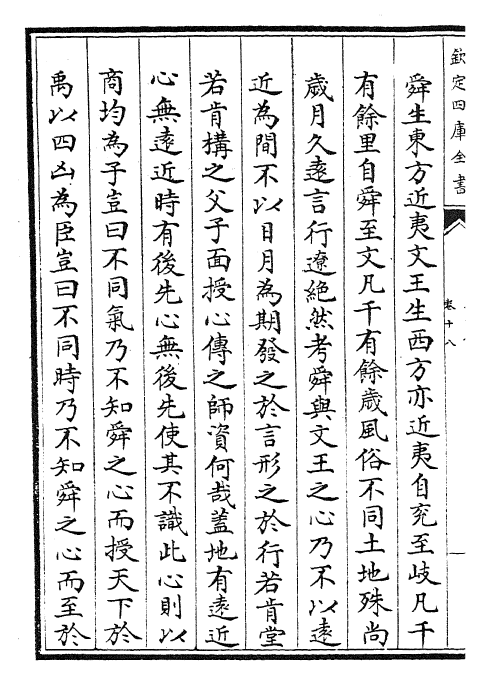 欽定四庫全書
卷十八
舜生東方近夷文王生西方亦近夷自兗至岐凡千
有餘里自舜至文凡千有餘歲風俗不同土地殊尚
歲月久遠言行遼絕然考舜與文王之心乃不以遠
近為間不以日月為期發之於言形之於行若肯堂
若肯構之父子面授心傳之師資何哉蓋地有遠近
心無遠近時有後先心無後先使其不識此心則以
商均為子豈曰不同氣乃不知舜之心而授天下於
禹以四凶為臣豈曰不同時乃不知舜之心而至於